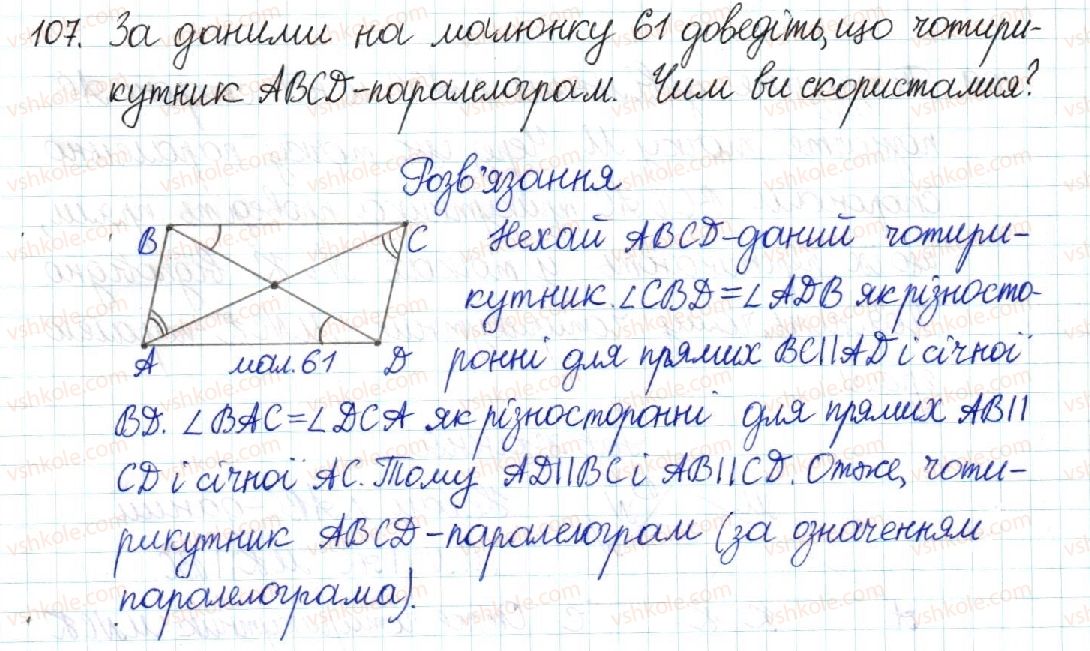 107. За даними на малюнку 61 доведіть, що чотири-
кутник ABCD-паралелограм. Чим ви скористалися?
Розв'язання
B C Нехай ABCD-даний чотири-
кутник. ∠CBD=∠ADB як різносто-
A мал.61 D ронні для прямих BC||AD і січної
BD. ∠BAC=∠DCA як різносторонні для прямих AB||
CD і січної AC. Тому AD||BC і AB||CD. Отже, чоти-
рикутник ABCD-паралелограм (за означенням
паралелограма).
vshkole.com